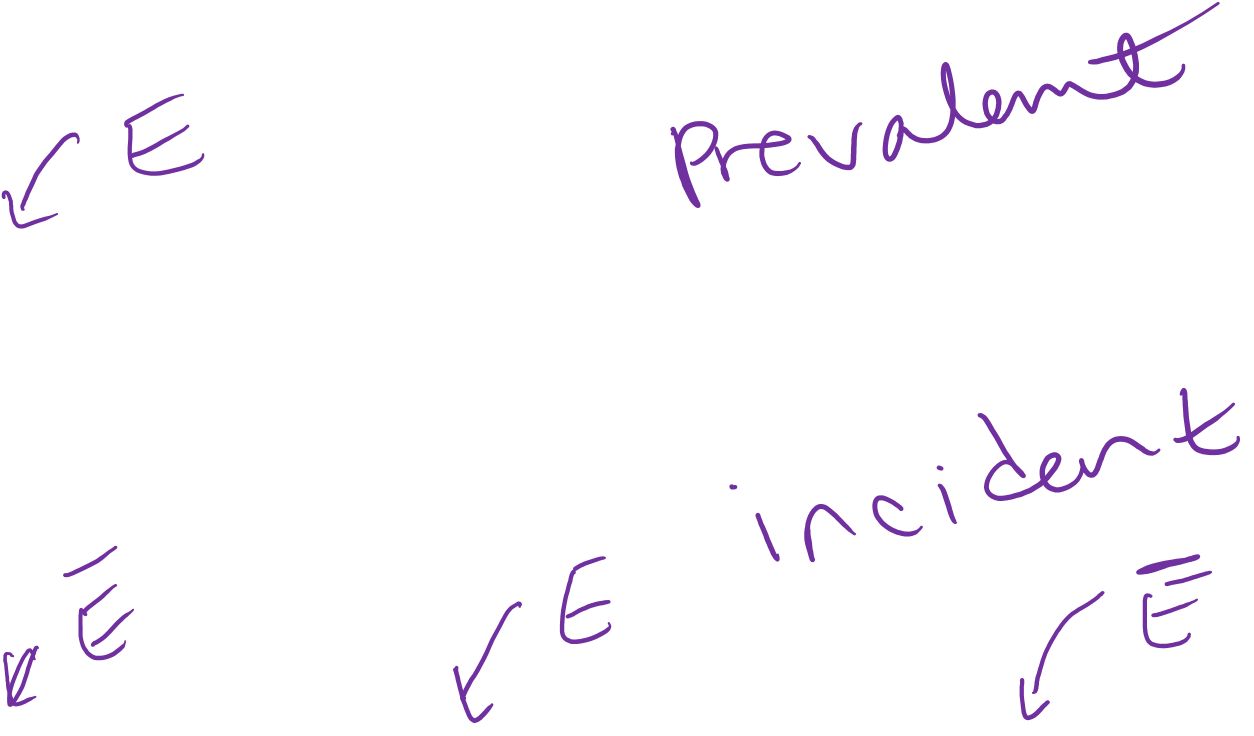 E prevalent
incident
Ē E Ē